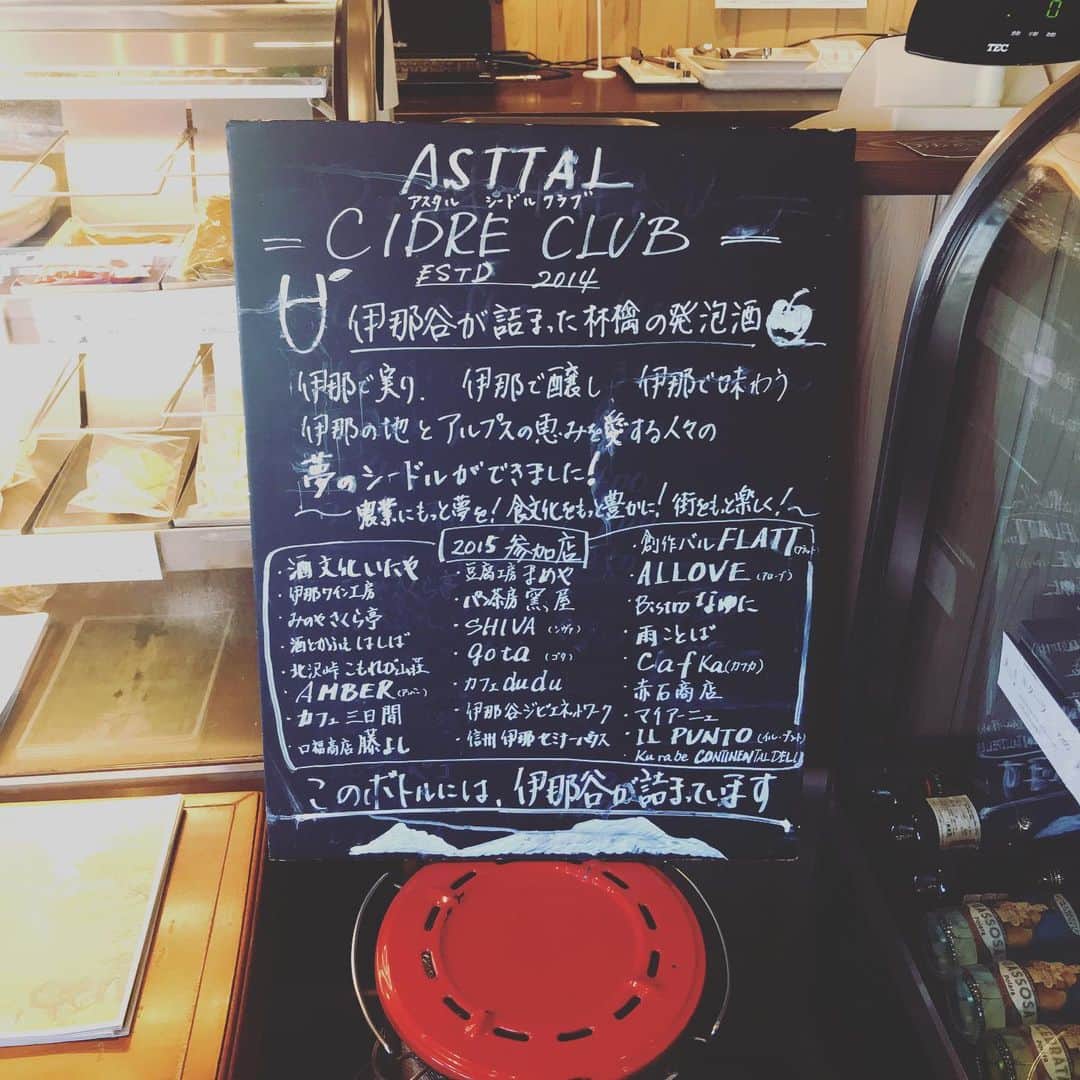 ASTTAL
アスタル シードルクラブ
= CIDRE CLUB =
ESTD 2014
伊那谷が詰まった林檎の発泡酒
伊那で実り、 伊那で醸し 伊那で味わう
伊那の地とアルプスの恵みを愛する人々の
夢のシードルができました!
〜農業にもっと夢を!食文化をもっと豊かに!街をもっと楽しく!〜
2015 参加店
・酒文化いたや
・伊那ワイン工房
・みのやさくら亭
・酒とからふね はしば
・北沢峠こもれび山荘
・AMBER(アンバー)
・カフェ三日間
・口福商店 藤よし
・豆腐工房まめや
・パン茶房 窯屋
・SHIVA(シヴァ)
・gota(ゴタ)
・カフェdudu
・伊那谷ジビエネットワーク
・信州伊那セミナーハウス
・創作バル FLATT(フラット)
・ALLOVE(アローブ)
・Bistroなゆに
・雨ことば
・CafKa(カフカ)
・赤石商店
・マイアーニュ
・IL PUNTO(イル・プント)
・Kurabe CONTINENTAL DELI
このボトルには、伊那谷が詰まっています
TEC
0